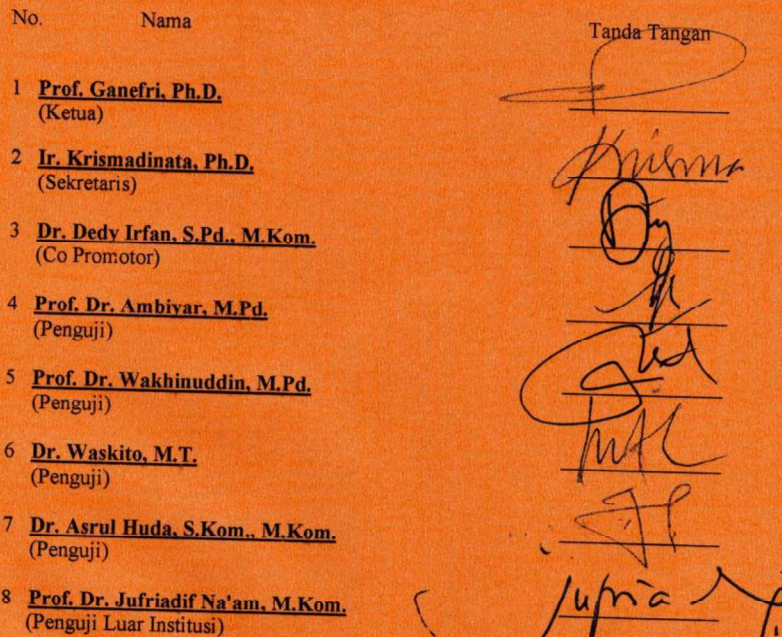 No. Nama Tanda Tangan
1 Prof. Ganefri, Ph.D.
(Ketua)
2 Ir. Krismadinata, Ph.D.
(Sekretaris)
3 Dr. Dedy Irfan, S.Pd., M.Kom.
(Co Promotor)
4 Prof. Dr. Ambiyar, M.Pd.
(Penguji)
5 Prof. Dr. Wakhinuddin, M.Pd.
(Penguji)
6 Dr. Waskito, M.T.
(Penguji)
7 Dr. Asrul Huda, S.Kom., M.Kom.
(Penguji)
8 Prof. Dr. Jufriadif Na'am, M.Kom.
(Penguji Luar Institusi)